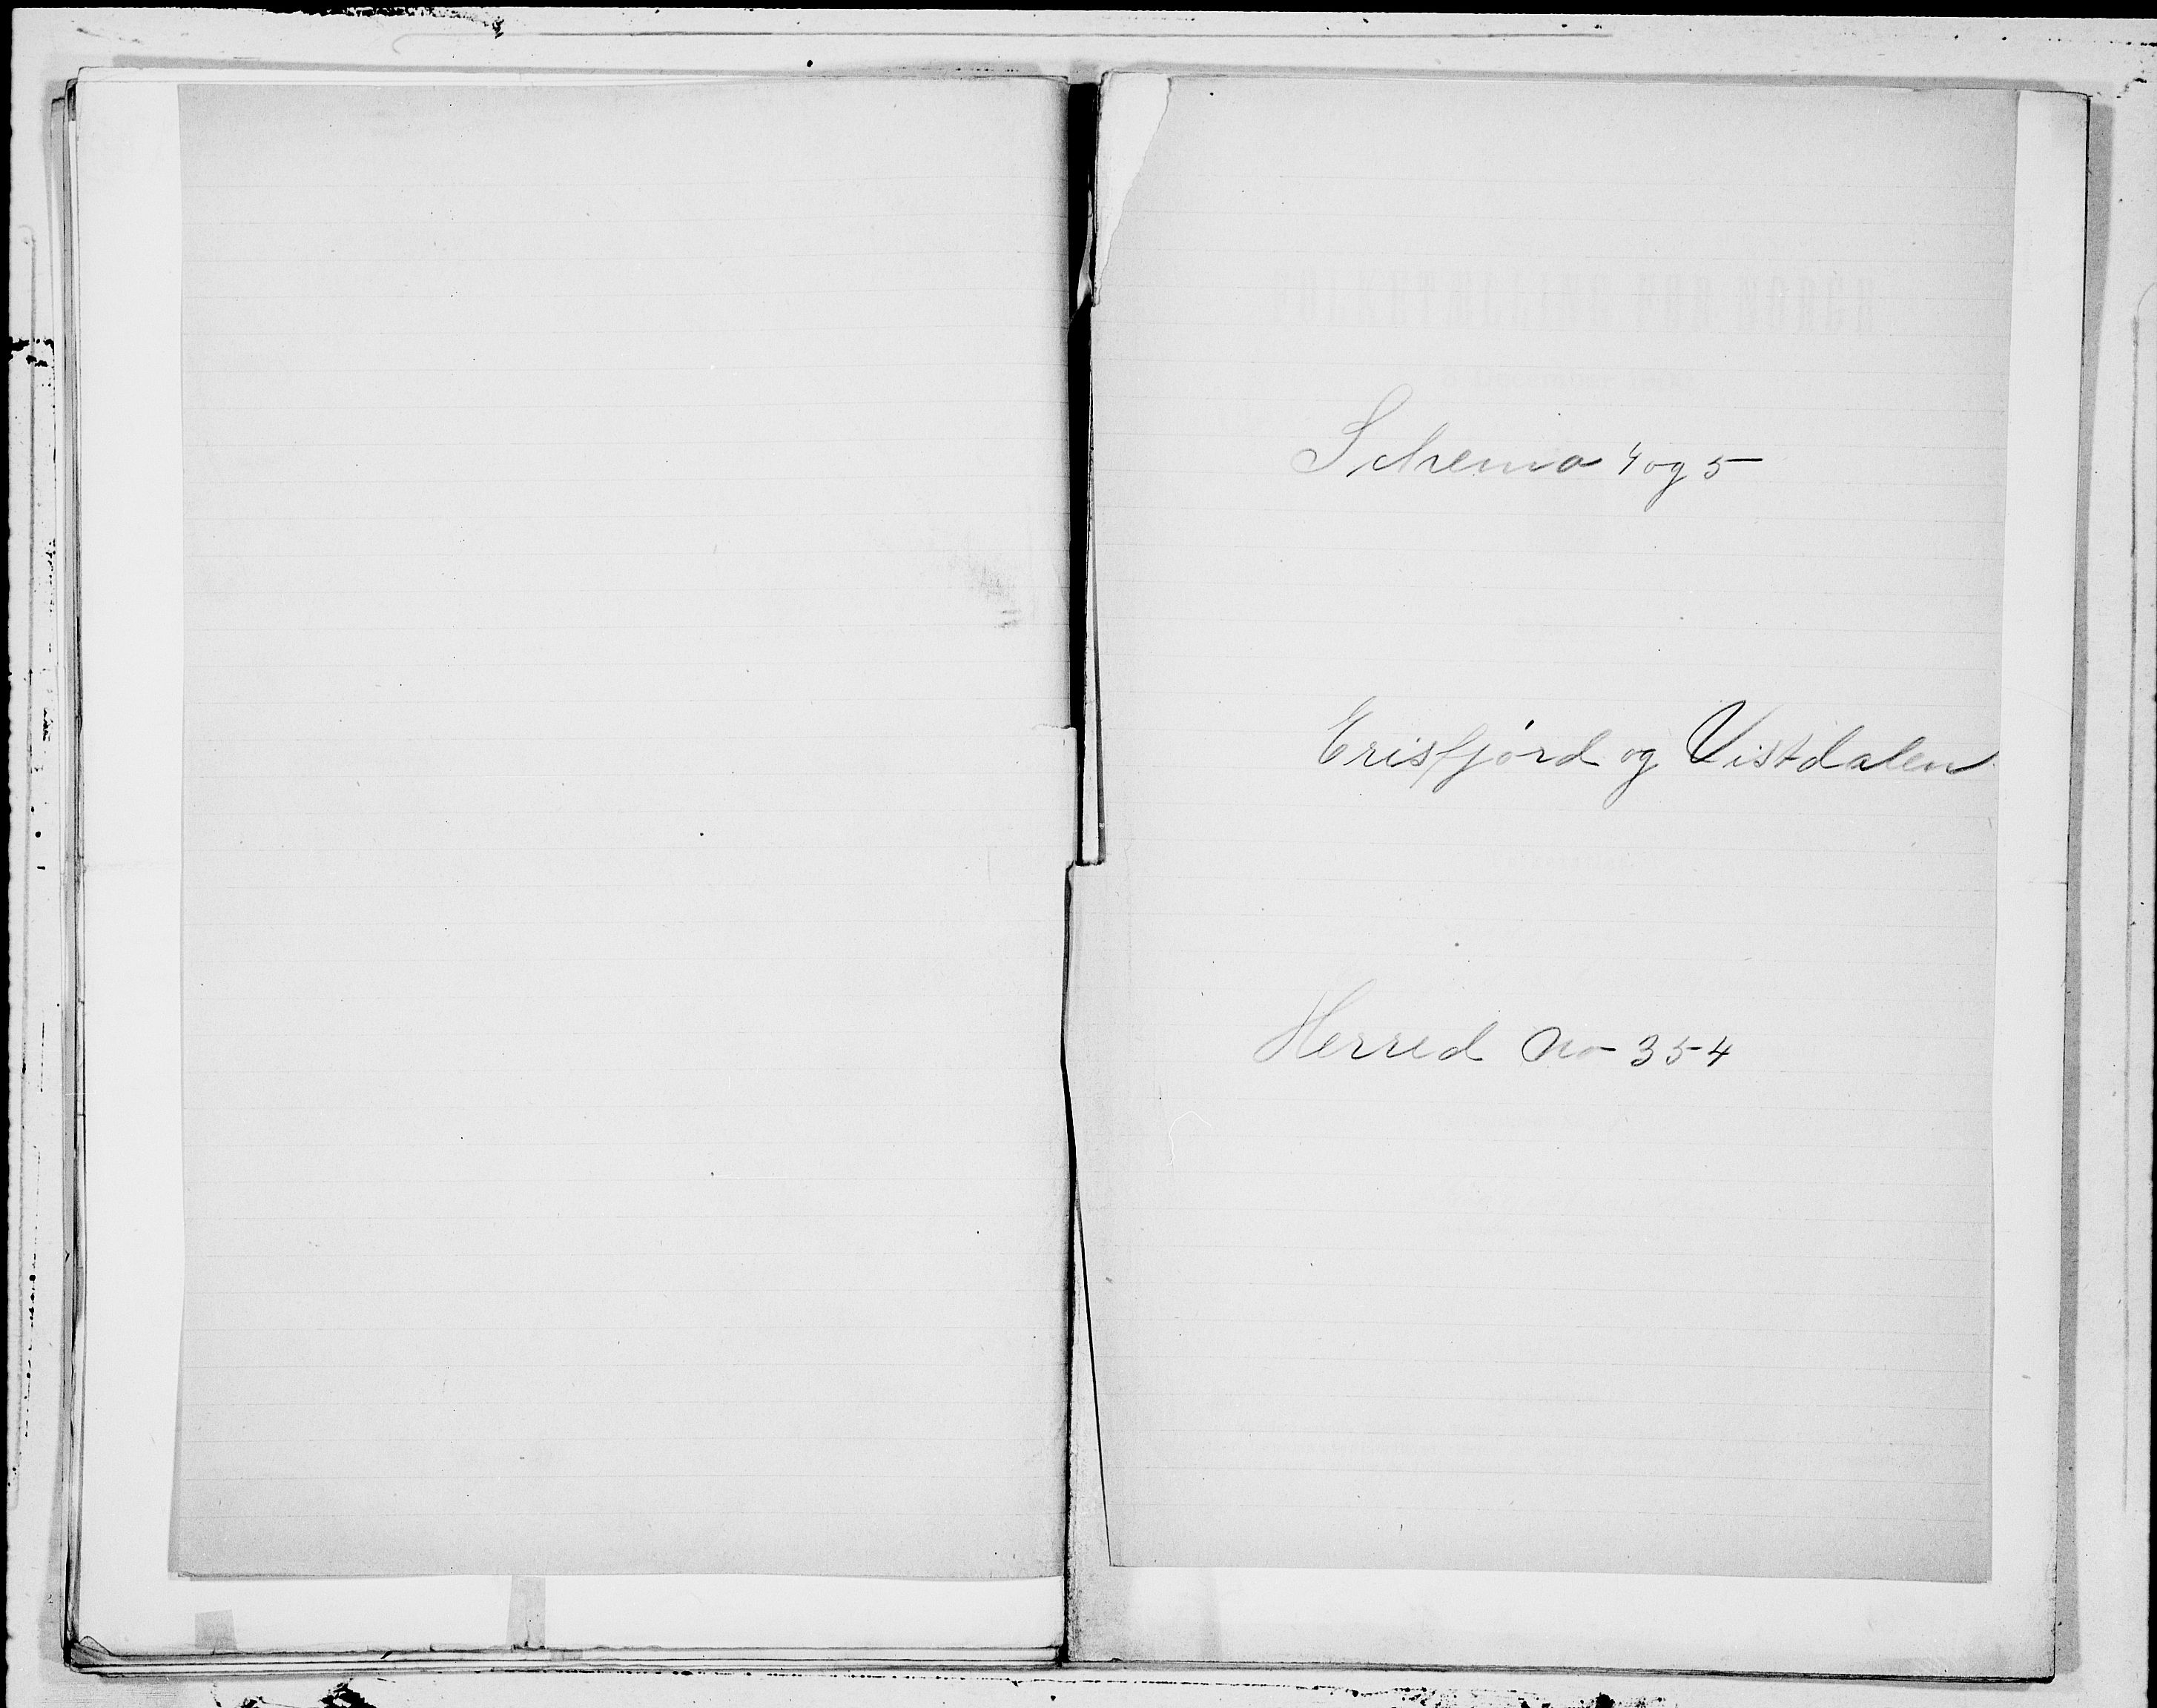 FOLKETÆLLING FOR NORGE
Schema 4 og 5
Erisfjord og Vistdalen
Herred No 354